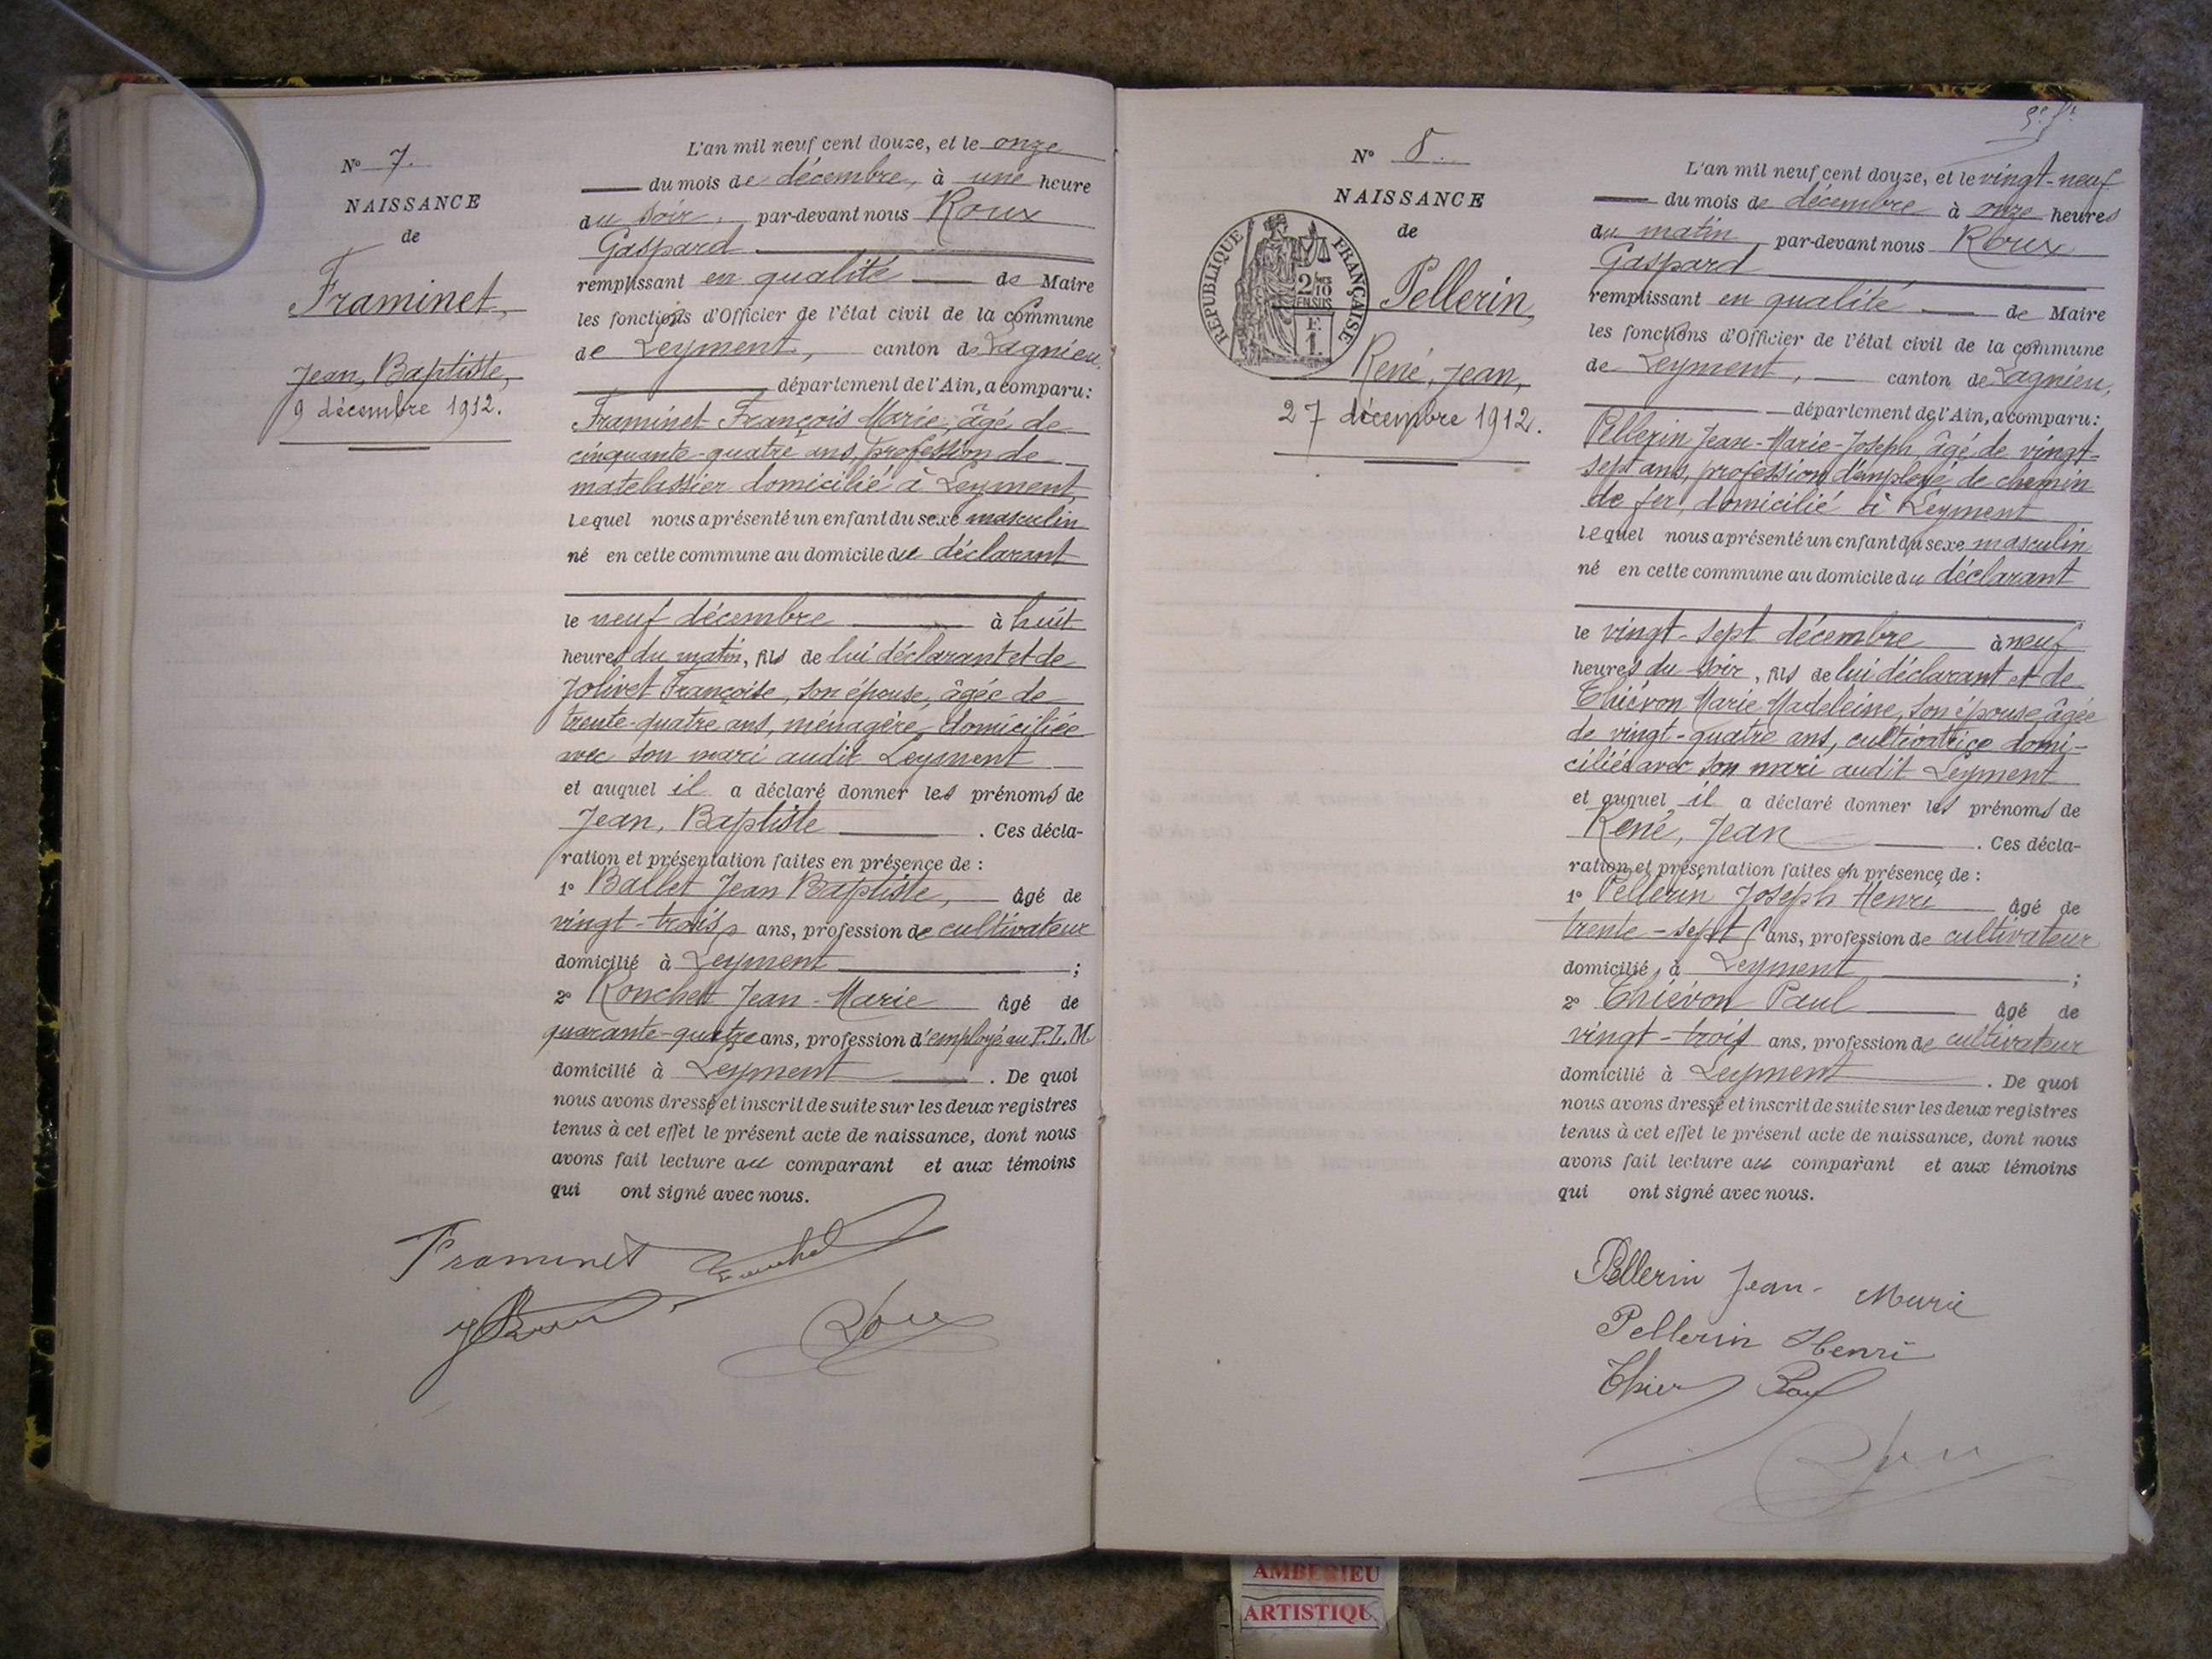 N° 7.
NAISSANCE
de
Framinet,
Jean, Baptiste,
9 décembre 1912.
L'an mil neuf cent douze, et le onze
du mois de décembre, à une heure
du soir, par-devant nous Roux
Gaspard
remplissant en qualité de Maire
les fonctions d'Officier de l'état civil de la commune
de Leyment, canton de Lagnieu,
département de l'Ain, a comparu:
Framinet François Marie, âgé de
cinquante-quatre ans, profession de
matelassier domicilié à Leyment,
lequel nous a présenté un enfant du sexe masculin
né en cette commune au domicile du déclarant
le neuf décembre à huit
heures du matin, fils de lui déclarant et de
Jolivet Françoise, son épouse, âgée de
trente-quatre ans, ménagère, domiciliée
avec son mari audit Leyment
et auquel il a déclaré donner les prénoms de
Jean, Baptiste . Ces décla-
ration et présentation faites en présence de :
1° Ballet Jean Baptiste, âgé de
vingt-trois ans, profession de cultivateur
domicilié à Leyment ;
2° Ronchet Jean-Marie âgé de
quarante-quatre ans, profession d'employé au P.L.M.
domicilié à Leyment . De quoi
nous avons dressé et inscrit de suite sur les deux registres
tenus à cet effet le présent acte de naissance, dont nous
avons fait lecture au comparant et aux témoins
qui ont signé avec nous.
Framinet
Roux
N° 8.
NAISSANCE
de
RÉPUBLIQUE FRANÇAISE
2/10 EN SUS
F. 1.
Pellerin,
René, Jean,
27 décembre 1912.
L'an mil neuf cent douze, et le vingt-neuf
du mois de décembre à onze heures
du matin par-devant nous Roux
Gaspard
remplissant en qualité de Maire
les fonctions d'Officier de l'état civil de la commune
de Leyment, canton de Lagnieu,
département de l'Ain, a comparu:
Pellerin Jean-Marie-Joseph, âgé de vingt-
sept ans, profession d'employé de chemin
de fer, domicilié à Leyment
lequel nous a présenté un enfant du sexe masculin
né en cette commune au domicile du déclarant
le vingt-sept décembre à neuf
heures du soir, fils de lui déclarant et de
Thiévon Marie Madeleine, son épouse, âgée
de vingt-quatre ans, cultivatrice domi-
ciliée avec son mari audit Leyment
et auquel il a déclaré donner les prénoms de
René, Jean . Ces décla-
ration et présentation faites en présence de :
1° Pellerin Joseph Henri âgé de
trente-sept ans, profession de cultivateur
domicilié à Leyment ;
2° Thiévon Paul âgé de
vingt-trois ans, profession de cultivateur
domicilié à Leyment . De quoi
nous avons dressé et inscrit de suite sur les deux registres
tenus à cet effet le présent acte de naissance, dont nous
avons fait lecture au comparant et aux témoins
qui ont signé avec nous.
Pellerin Jean-Marie
Pellerin Henri
AMBERIEU
ARTISTIQU